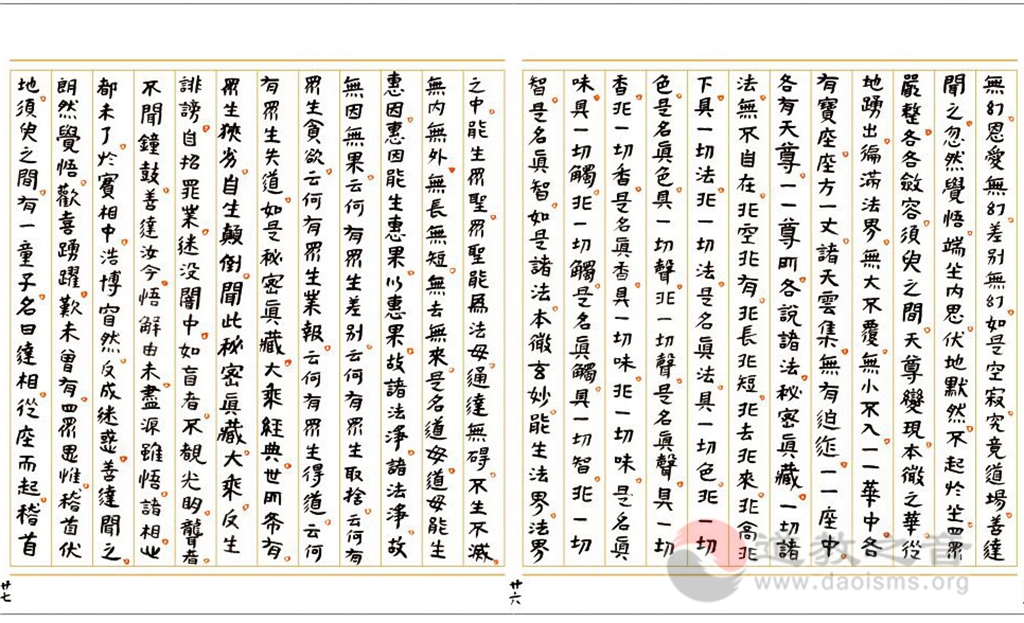 無幻恩愛無幻差别無幻如是空寂究竟道場善達
聞之忽然覺悟端坐内思伏地默然不起於坐四眾
嚴整各各斂容須臾之間天尊變現本微之華從
地踴出徧滿法界無大不覆無小不入一一華中各
有寶座座方一丈諸天雲集無有迫迮一一座中
各有天尊一一尊所各說諸法秘密真藏一切諸
法無不自在非空非有非長非短非去非來非高非
下具一切法非一切法是名真法具一切色非一切
色是名真色具一切聲非一切聲是名真聲具一切
香非一切香是名真香具一切味非一切味是名真
味具一切觸非一切觸是名真觸具一切智非一切
智是名真智如是諸法本微玄妙能生法界法界
廿六
之中能生眾聖眾聖能為法母通達無碍不生不滅
無内無外無長無短無去無來是名道母道母能生
惠因惠因能生惠果以惠果故諸法淨諸法淨故
無因無果云何有眾生差别云何有眾生取捨云何有
眾生貪欲云何有眾生業報云何有眾生得道云何
有眾生失道如是秘密真藏大乘經典世所希有
眾生狹劣自生顛倒聞此秘密真藏大乘反生
誹謗自招罪業迷没闇中如盲者不覩光明聾者
不聞鐘鼓善達汝今悟解由未盡源雖悟諸相此
都未了於實相中浩博窅然反成迷惑善達聞之
朗然覺悟歡喜踴躍歎未曾有四眾思惟稽首伏
地須臾之間有一童子名曰達相從座而起稽首
廿七
道教之音
www.daoisms.org